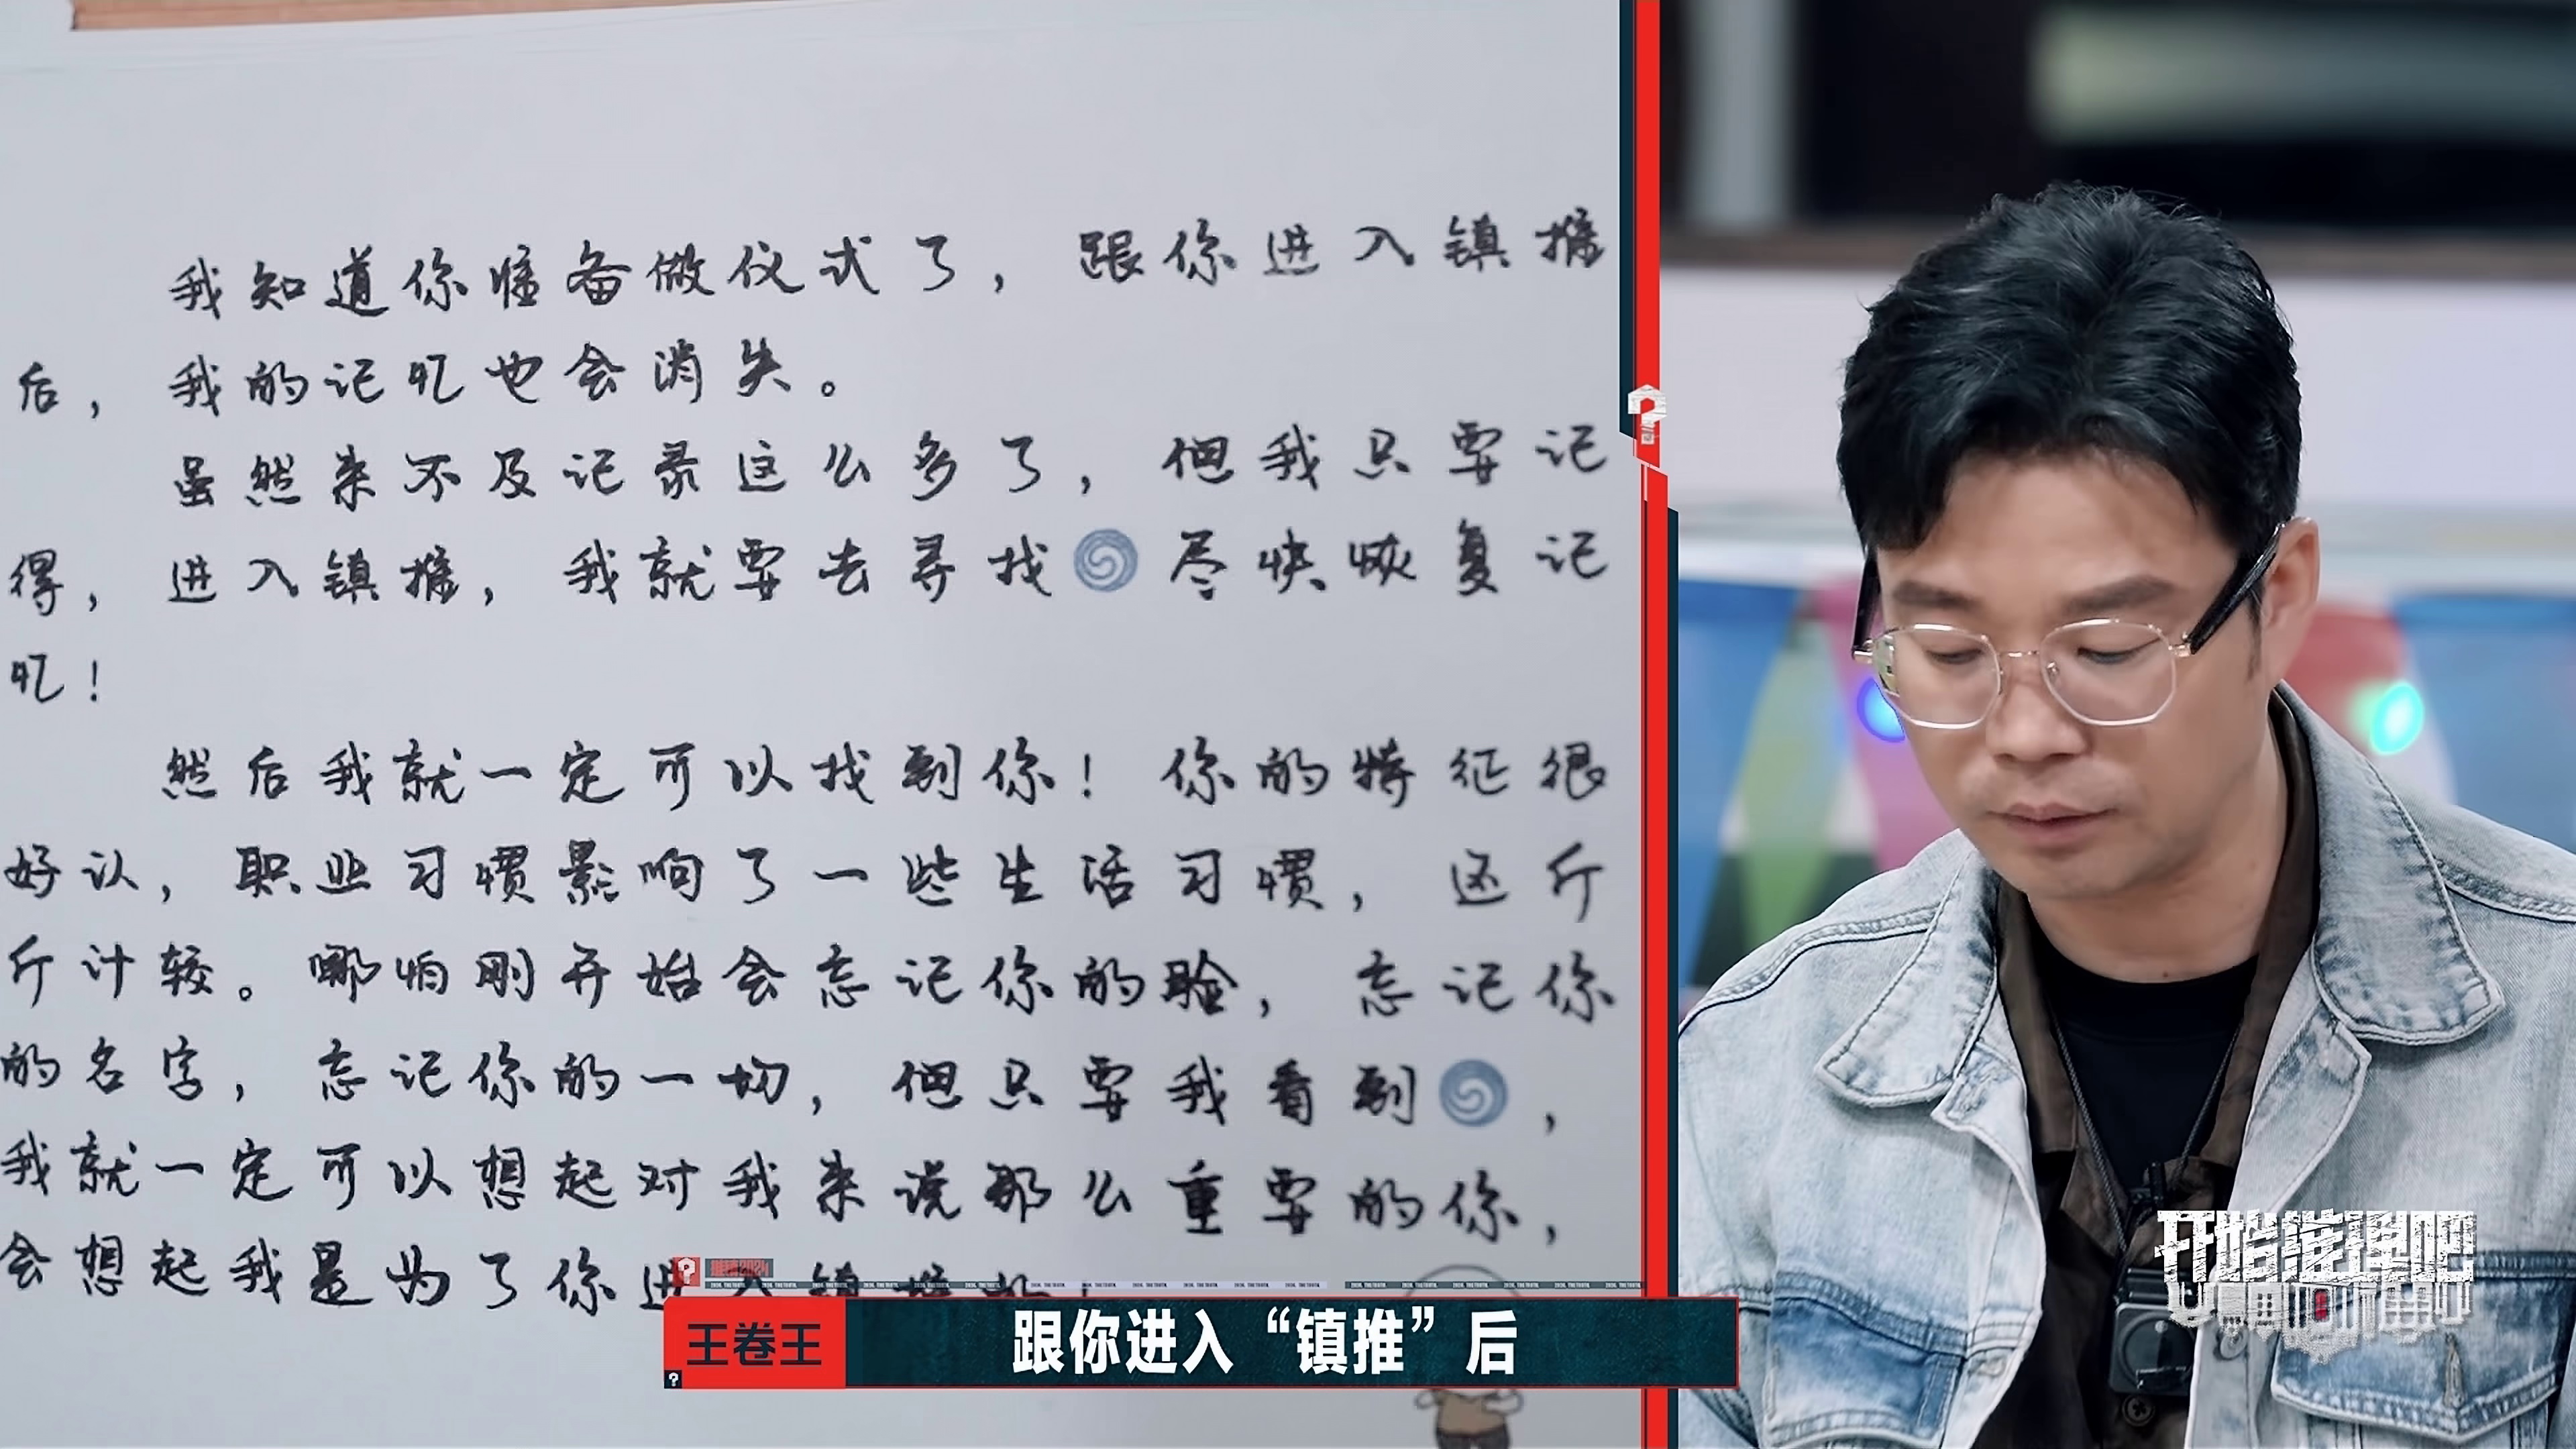 我知道你准备做仪式了，跟你进入镇推
后，我的记忆也会消失。
虽然来不及记录这么多了，但我只要记
得，进入镇推，我就要去寻找 尽快恢复记
忆！
然后我就一定可以找到你！你的特征很
好认，职业习惯影响了一些生活习惯，还斤
斤计较。哪怕刚开始会忘记你的脸，忘记你
的名字，忘记你的一切，但只要我看到 ，
我就一定可以想起对我来说那么重要的你，
会想起我是为了你进入镇推的！
王卷王
跟你进入“镇推”后
开始推理吧